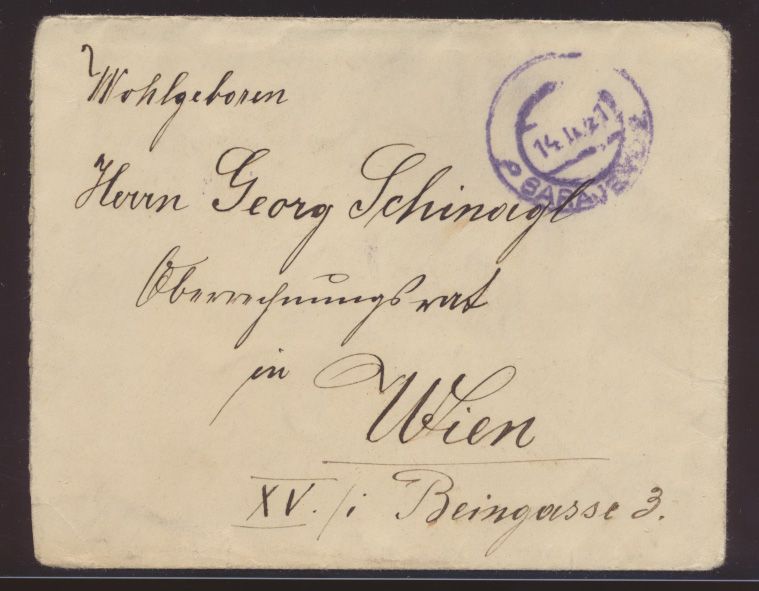 Wohlgeboren
Herrn Georg Schinagl
Oberrechnungsrat
in Wien
XV./i Beingasse 3.
14. II. 21
SARAJEVO